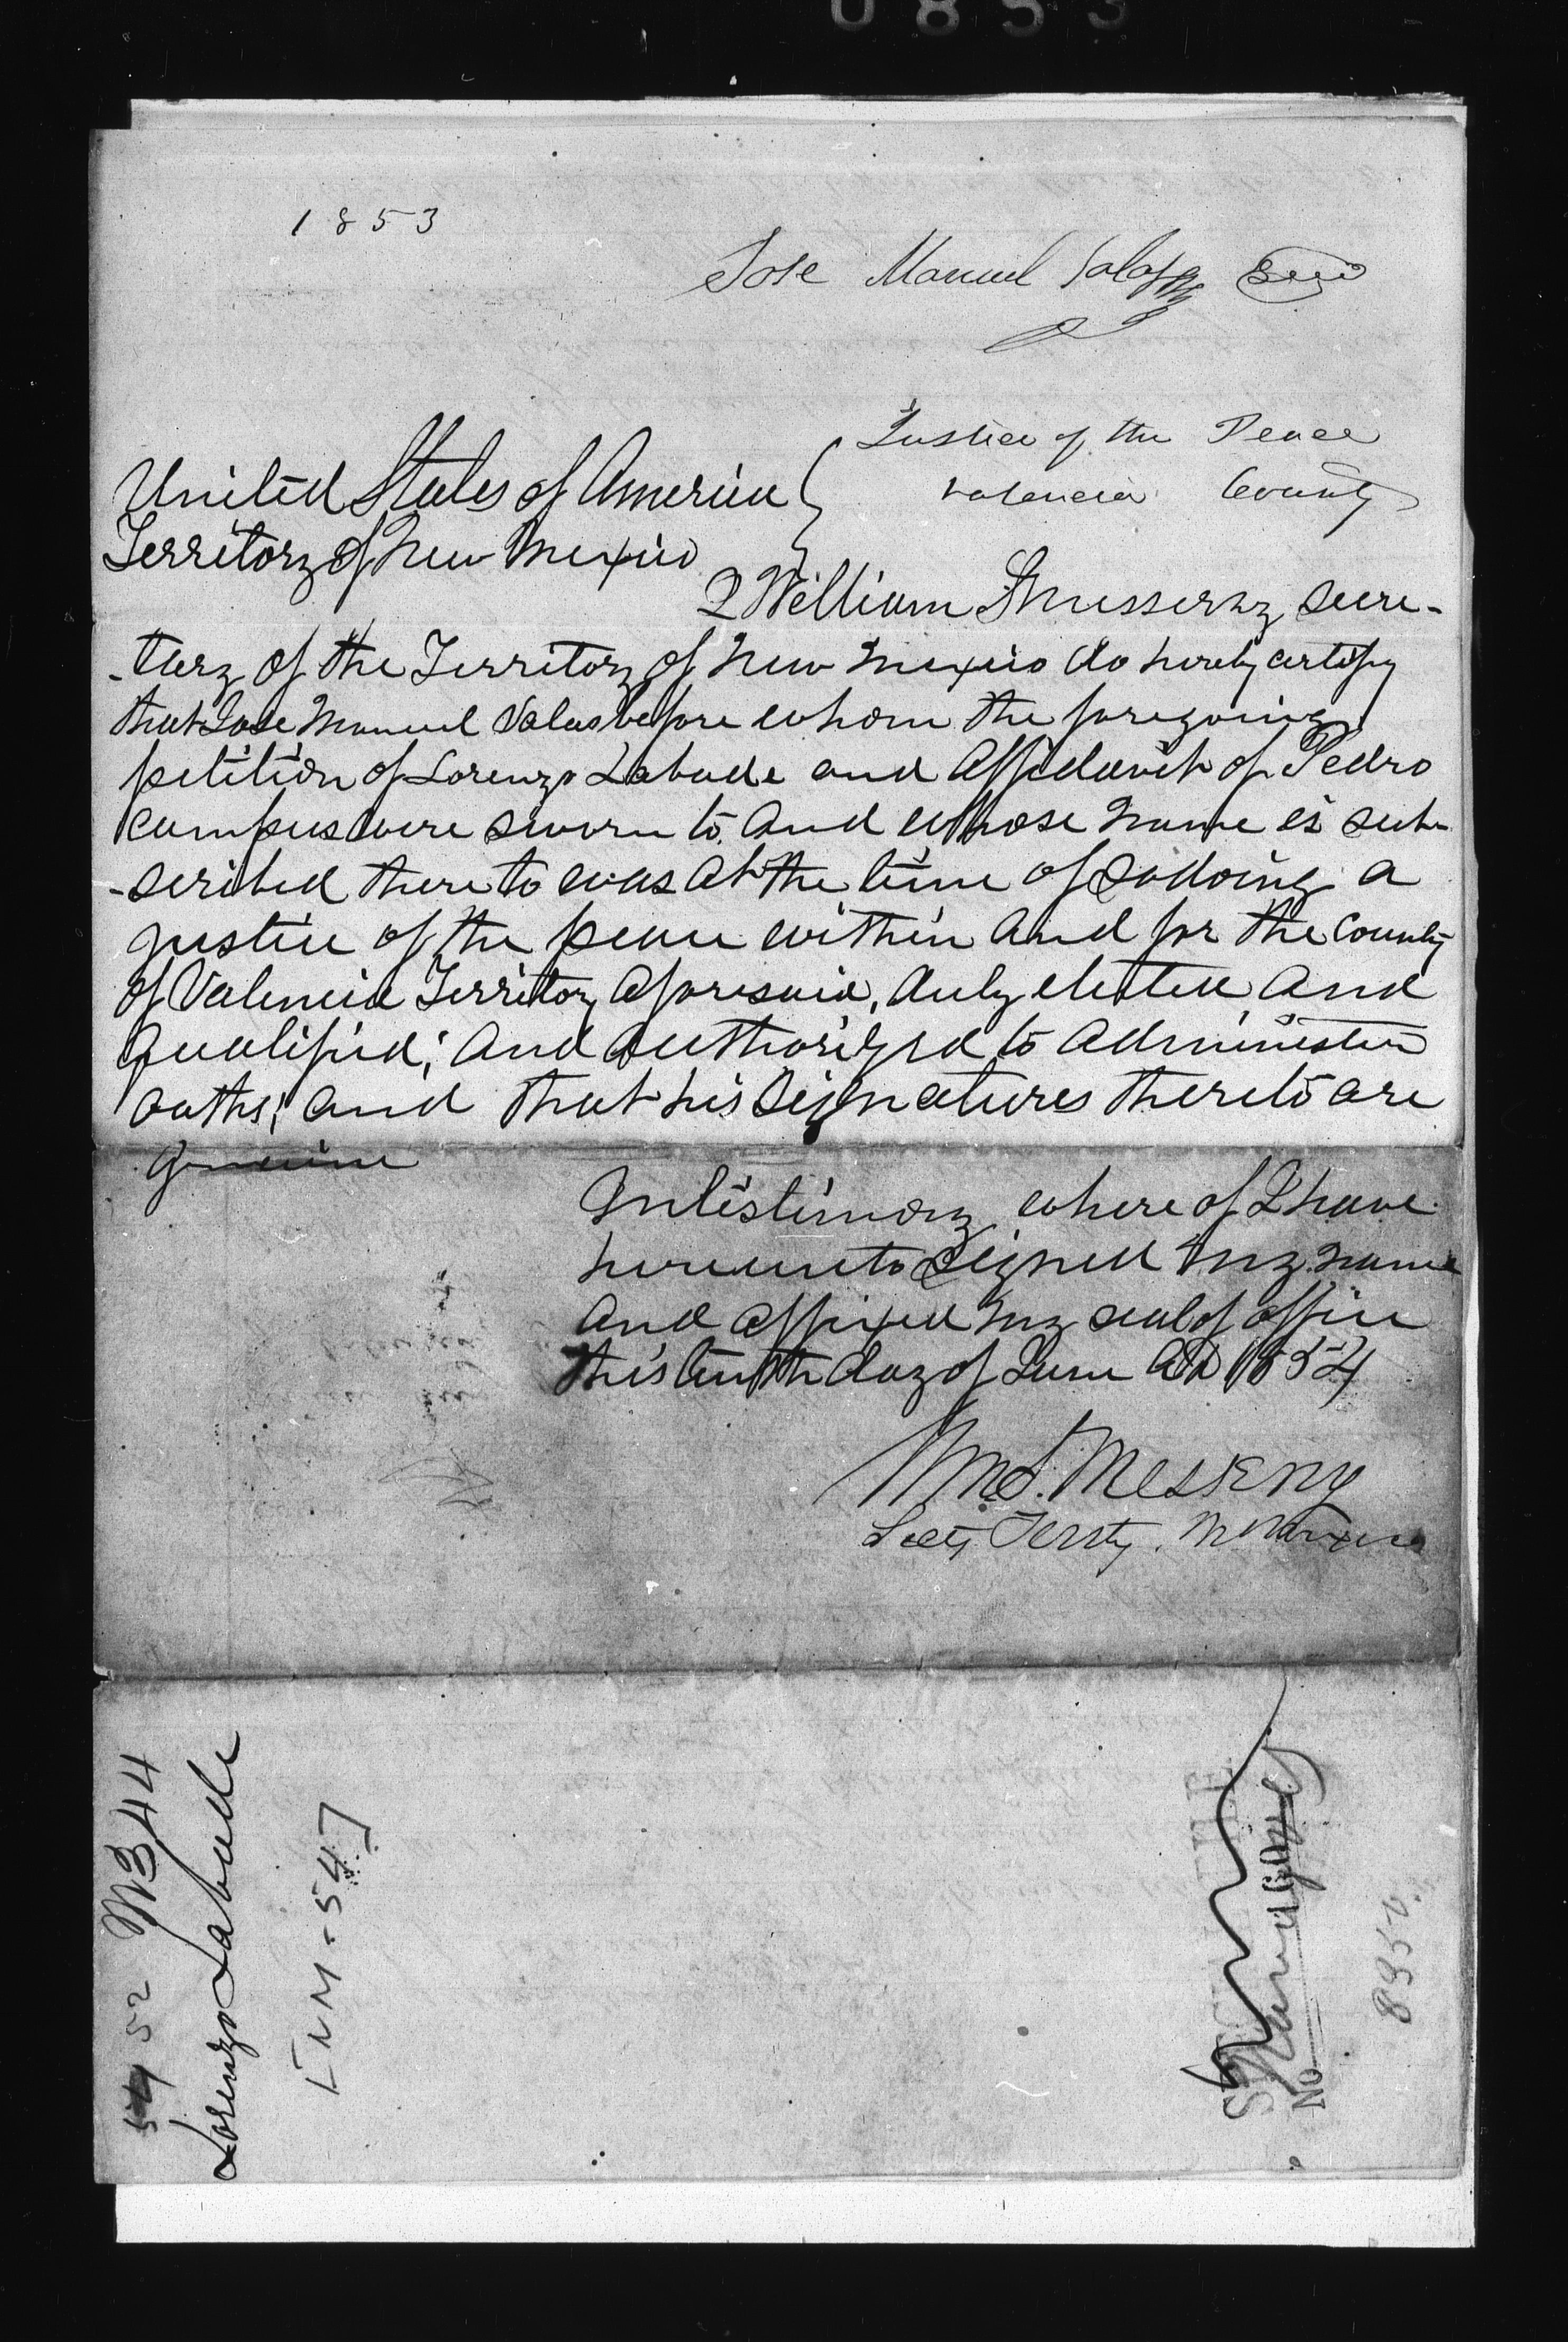 0853
1853
Jose Manuel Salas
Justice of the Peace
Valencia County
United States of America
Territory of New Mexico
I William S Messervy secre-
-tary of the Territory of New Mexico do hereby certify
that Jose Manuel Salas before whom the foregoing
petition of Lorenzo Labadie and Affidavit of Pedro
Campus were sworn to and whose name is sub-
-scribed there to was at the time of so doing a
justice of the peace within and for the County
of Valencia Territory aforesaid, duly elected and
qualified; and authorized to administer
oaths; and that his signatures thereto are
genuine
In testimony where of I have
hereunto signed my name
and affixed my seal of office
this tenth day of June AD 1854
Wm S. Messervy
Secty Terrty. N Mexico
5452 M344
Lorenzo Labadie
[NM-54]
No
8950